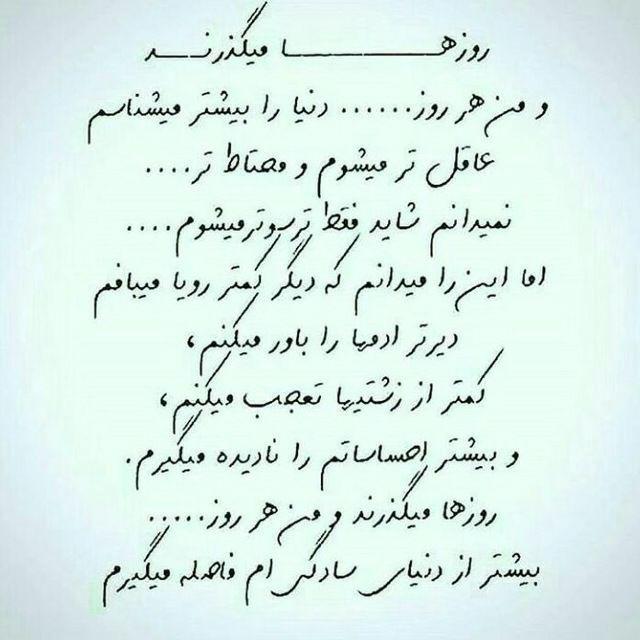 روزهــــــا میگذرنــــد
و من هر روز...... دنیا را بیشتر میشناسم
عاقل تر میشوم و محتاط تر....
نمیدانم شاید فقط ترسوتر میشوم....
اما این را میدانم که دیگر کمتر رویا میبافم
دیرتر ادمها را باور میکنم،
کمتر از زشتیها تعجب میکنم،
و بیشتر احساساتم را نادیده میگیرم.
روزها میگذرند و من هر روز.....
بیشتر از دنیای سادگی ام فاصله میگیرم